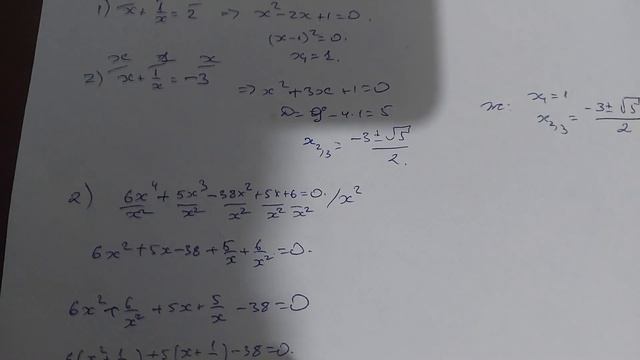 1) x + 1/x = 2 => x² - 2x + 1 = 0.
(x-1)² = 0.
x₁ = 1.
x x x
2) x + 1/x = -3
=> x² + 3x + 1 = 0
D = 9 - 4·1 = 5
x₂,₃ = (-3 ± √5)/2.
x₁ = 1
x₂,₃ = (-3 ± √5)/2
2) 6x⁴/x² + 5x³/x² - 38x²/x² + 5x/x² + 6/x² = 0. /x²
6x² + 5x - 38 + 5/x + 6/x² = 0.
6x² + 6/x² + 5x + 5/x - 38 = 0
6(x² + 1/ ) + 5(x + 1/ ) - 38 = 0.